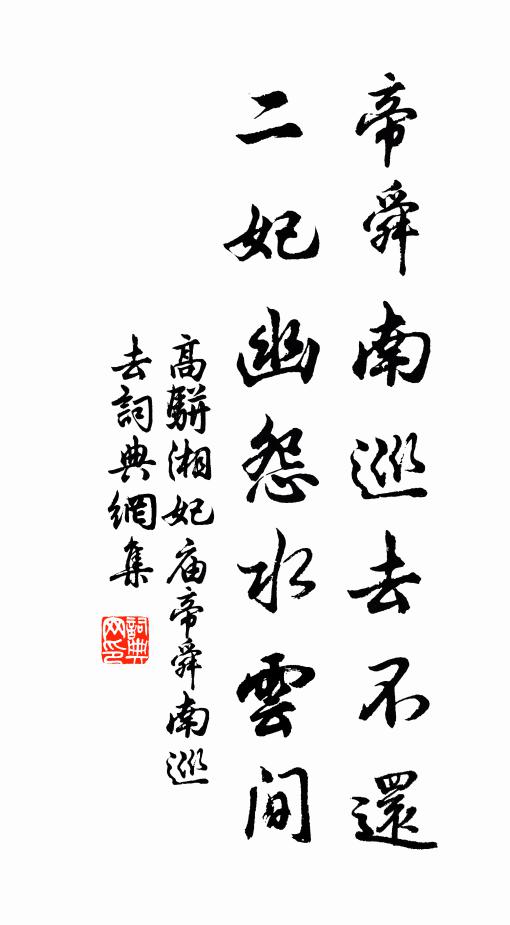 帝舜南巡去不還
二妃幽怨水雲間
高駢湘妃庙帝舜南巡
去詞典網集
詞典网印